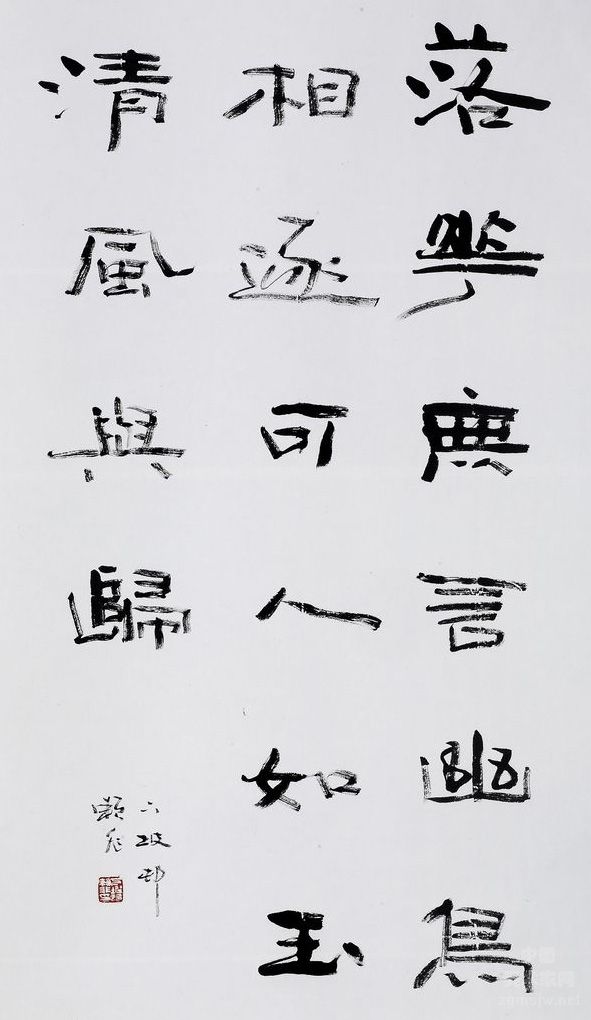 落華無言幽鳥
相逐可人如玉
清風與歸
zgmsjw.net